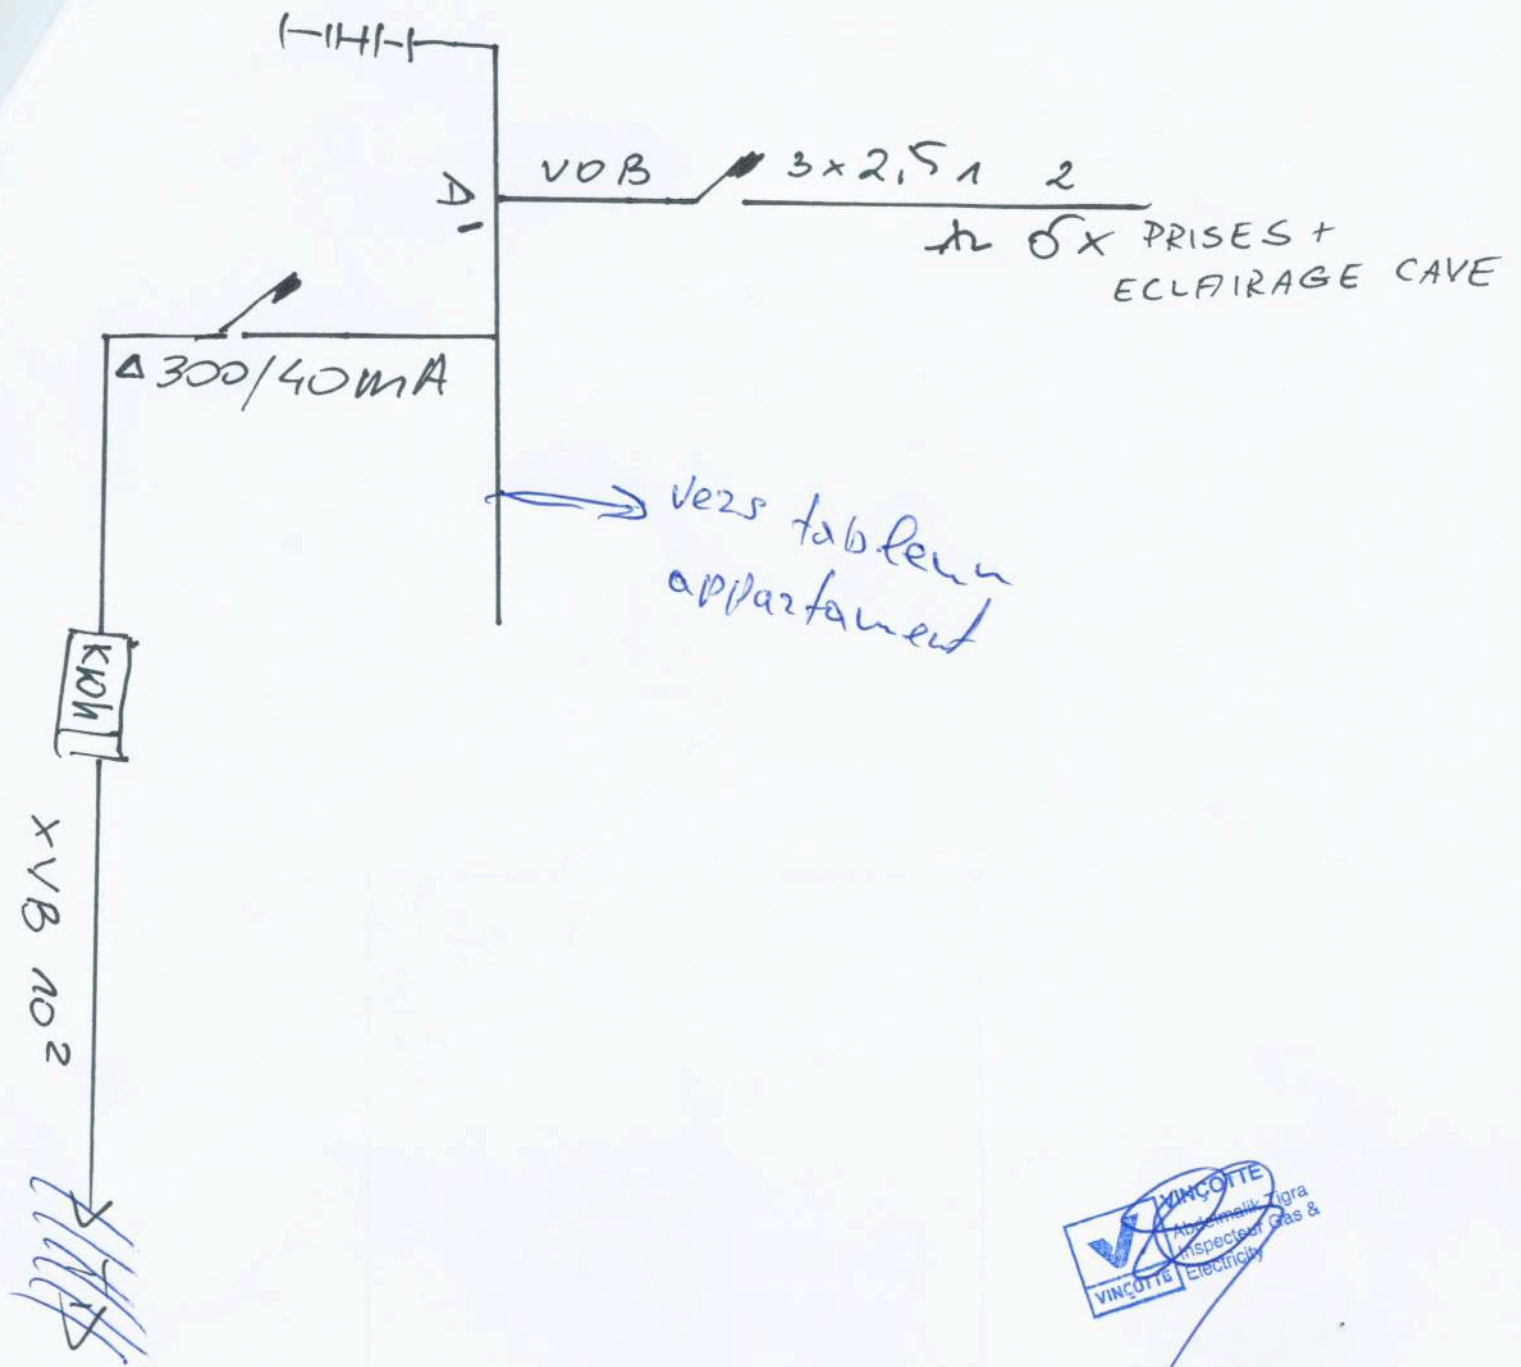 VOB
3x2,5 1 2
D
PRISES +
ECLAIRAGE CAVE
Δ 300/40mA
vers tableau
appartament
KWh
XVB 10²
VINÇOTTE
Abdelmalik Tigra
Inspecteur Gas &
Electricity
VINÇOTTE